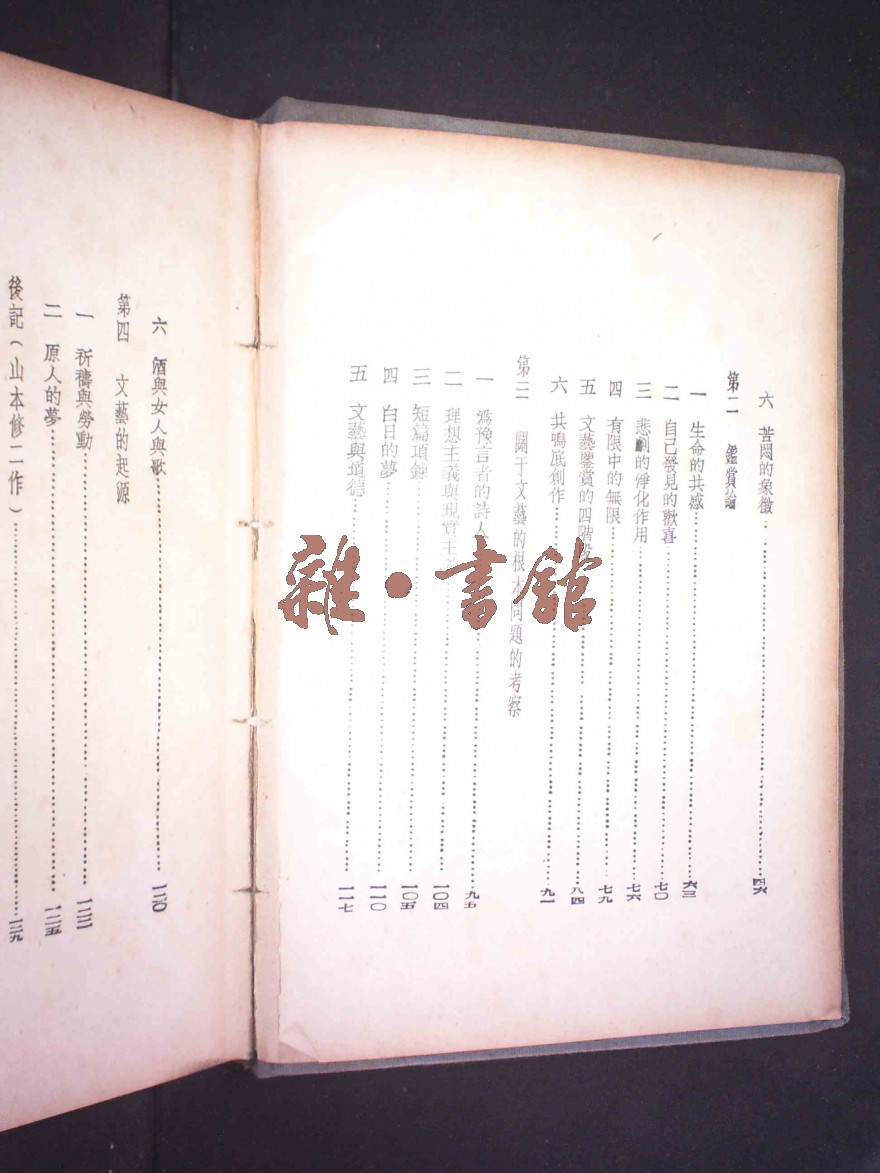 六 苦悶的象徵 四六
第二 鑑賞論
一 生命的共感 六三
二 自己發見的歡喜 七〇
三 悲劇的淨化作用 七六
四 有限中的無限 七九
五 文藝鑒賞的四階段 八四
六 共鳴底創作 九一
第三 關于文藝的根本問題的考察
一 爲豫言者的詩人 九五
二 理想主義與現實主 一〇四
三 短篇項鍊 一〇五
四 白日的夢 一一〇
五 文藝與道德 一一七
六 酒與女人與歌 一二〇
第四 文藝的起源
一 祈禱與勞動
二 原人的夢 一二五
後記(山本修二作) 一二九
雜·書館